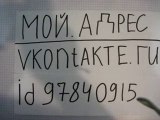 МОЙ. АДРЕС
VKONtAKTE.ГИ
id 97840915.